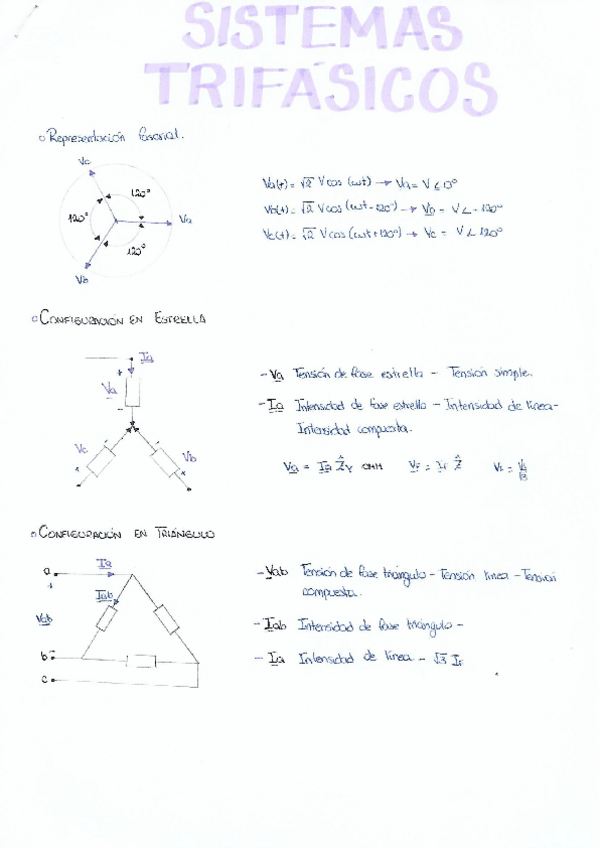 SISTEMAS
TRIFÁSICOS
Representación fasorial.
Vc
120°
120°
Va
120°
Vb
Va(t) = √2 V cos (ωt) → Va = V ∠0°
Vb(t) = √2 V cos (ωt - 120°) → Vb = V ∠-120°
Vc(t) = √2 V cos (ωt + 120°) → Vc = V ∠120°
CONFIGURACIÓN EN ESTRELLA
Ia
+
Va
-
Vc
Vb
- Va Tensión de fase estrella - Tensión simple.
- Ia Intensidad de fase estrella - Intensidad de línea -
Intensidad compuesta.
Va = Ia Ẑy OHM VF = IF Ẑ
CONFIGURACIÓN EN TRIÁNGULO
a
Ia
+
Iab
Vab
b
-
c
- Vab Tensión de fase triángulo - Tensión línea - Tensión
compuesta.
- Iab Intensidad de fase triángulo -
- Ia Intensidad de línea - √3 IF